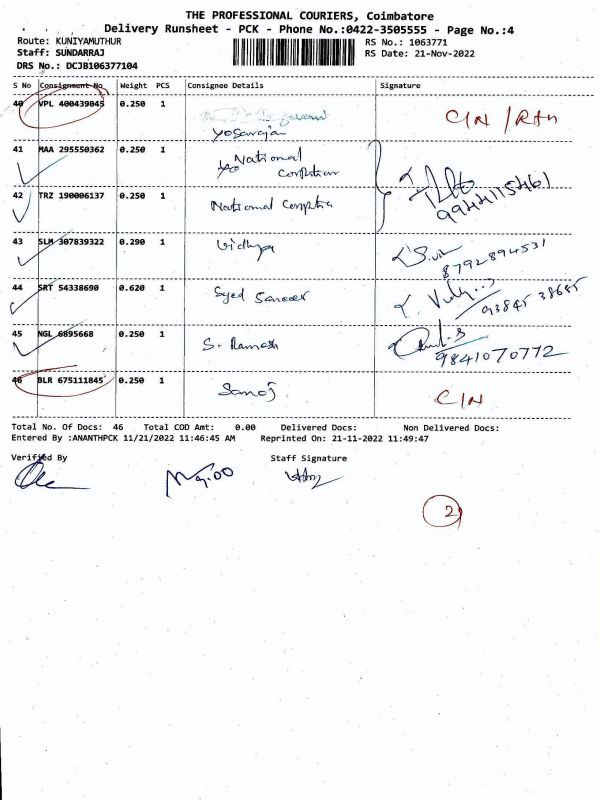 THE PROFESSIONAL COURIERS, Coimbatore
Delivery Runsheet - PCK - Phone No.:0422-3505555 - Page No.:4
Route: KUNIYAMUTHUR
RS No.: 1063771
Staff: SUNDARRAJ
RS Date: 21-Nov-2022
DRS No.: DCJB106377104
S No Consignment No Weight PCS Consignee Details Signature
40 VPL 400439045 0.250 1 C/N /
41 MAA 295550362 0.250 1 National
42 TRZ 190006137 0.250 1 National 9944115461
43 SLM 307839322 0.290 1 Vidhya 8792894531
44 SRT 54338690 0.620 1 Syed 9384538685
45 NGL 6895668 0.250 1 S. Ramesh 9841070772
46 BLR 675111845 0.250 1 Sanoj C/N
Total No. Of Docs: 46 Total COD Amt: 0.00 Delivered Docs: Non Delivered Docs:
Entered By :ANANTHPCK 11/21/2022 11:46:45 AM Reprinted On: 21-11-2022 11:49:47
Verified By Staff Signature
2